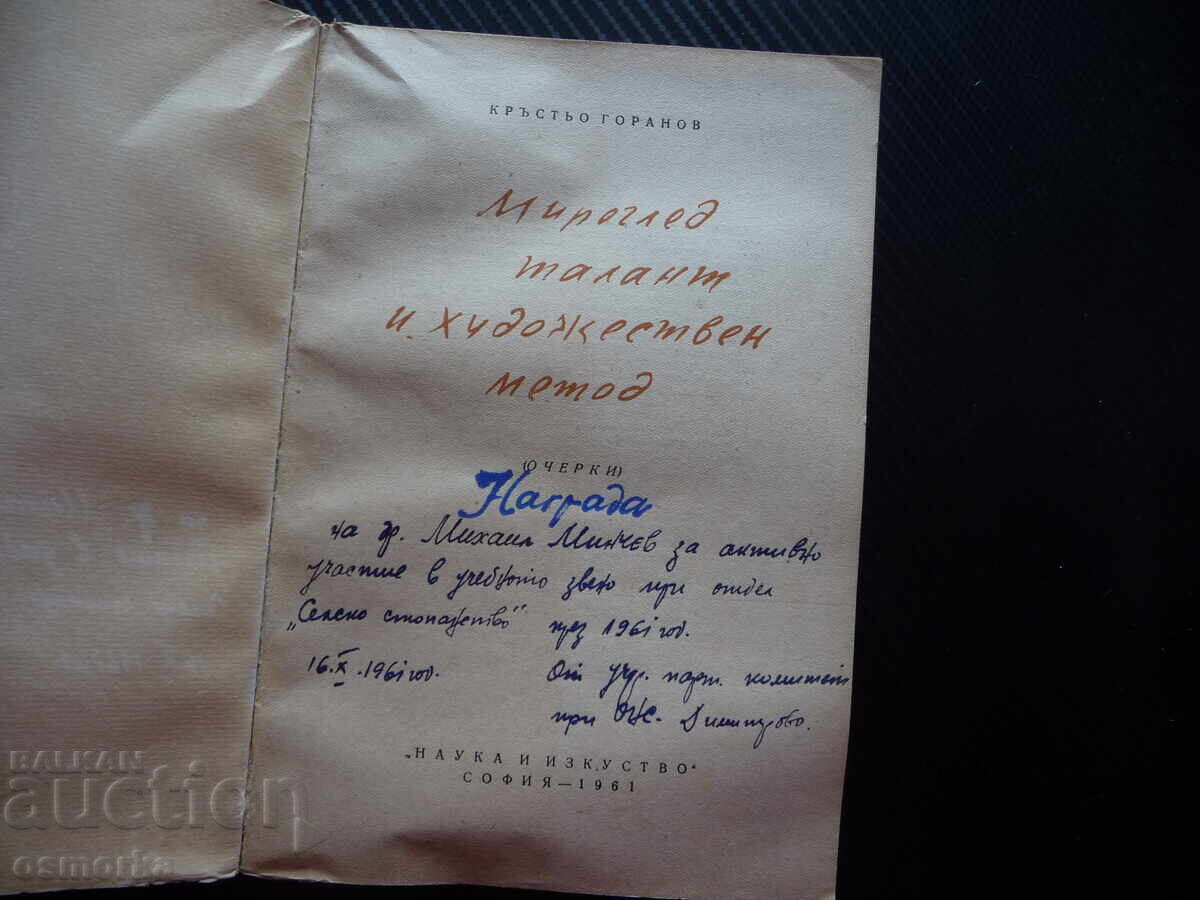 КРЪСТЬО ГОРАНОВ
Мироглед
талант
и художествен
метод
(ОЧЕРКИ)
Награда
на др. Михаил Минчев за активно
участие в учебното звено при отдел
„Селско стопанство" през 1961 год.
16.X.1961 год. От учр. парт. комитет
при ОНС - Димитрово.
„НАУКА И ИЗКУСТВО"
СОФИЯ — 1961
BALKAN
auction
osmorka